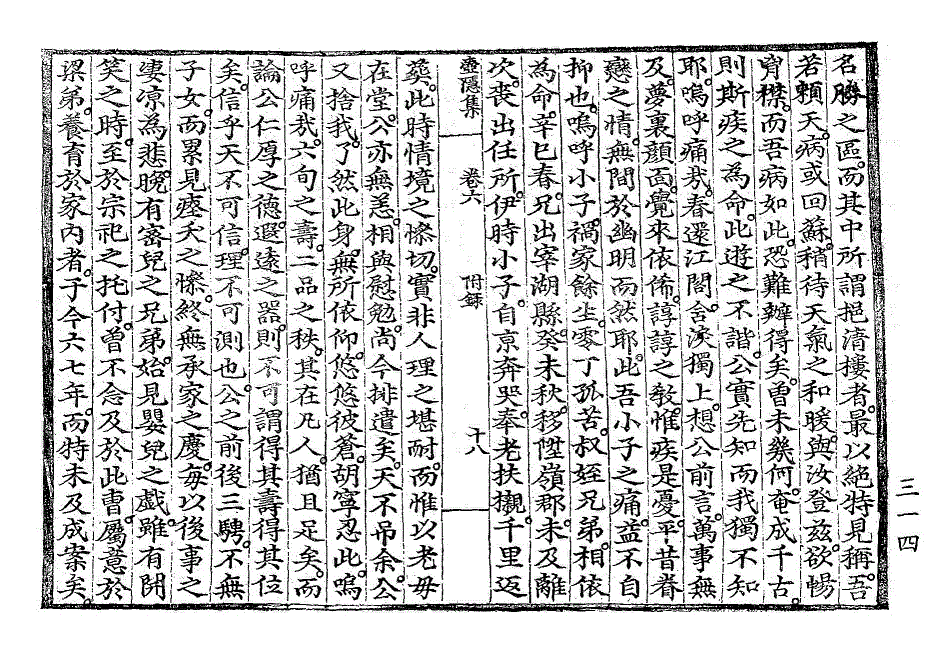 名勝之區而其中所謂挹清樓者最以絕特見稱吾
若賴天病或回蘇稍待天氣之和暖與汝登玆欲暢
胷襟而吾病如此恐難辦得矣曾未幾何奄成千古
則斯疾之為命此遊之不諧公實先知而我獨不知
耶嗚呼痛哉春還江閣舍淚獨上想公前言萬事無
及夢裏顔面覺來依俙諄諄之敎惟疾是憂平昔眷
戀之情無間於幽明而然耶此吾小子之痛益不自
抑也嗚呼小子禍家餘生零丁孤苦叔姪兄弟相依
為命辛巳春兄出宰湖縣癸未秋移陞嶺郡未及離
次喪出任所伊時小子自京奔哭奉老扶櫬千里返
壺隱集 卷六 附錄 十八
葬此時情境之慘切實非人理之堪耐而惟以老母
在堂公亦無恙相與慰勉尙今排遣矣天不吊余公
又捨我了然此身無所依仰悠悠彼蒼胡寧忍此嗚
呼痛哉六旬之壽二品之秩其在凡人猶且足矣而
論公仁厚之德遐遠之器則不可謂得其壽得其位
矣信乎天不可信理不可測也公之前後三騁不無
子女而累見瘞夭之慘終無承家之慶每以後事之
凄凉為悲晩有畜兒之兄弟始見嬰兒之戲雖有開
笑之時至於宗祀之托付曾不念及於此曹屬意於
梁弟養育於家內者于今六七年而特未及成案矣
三一四